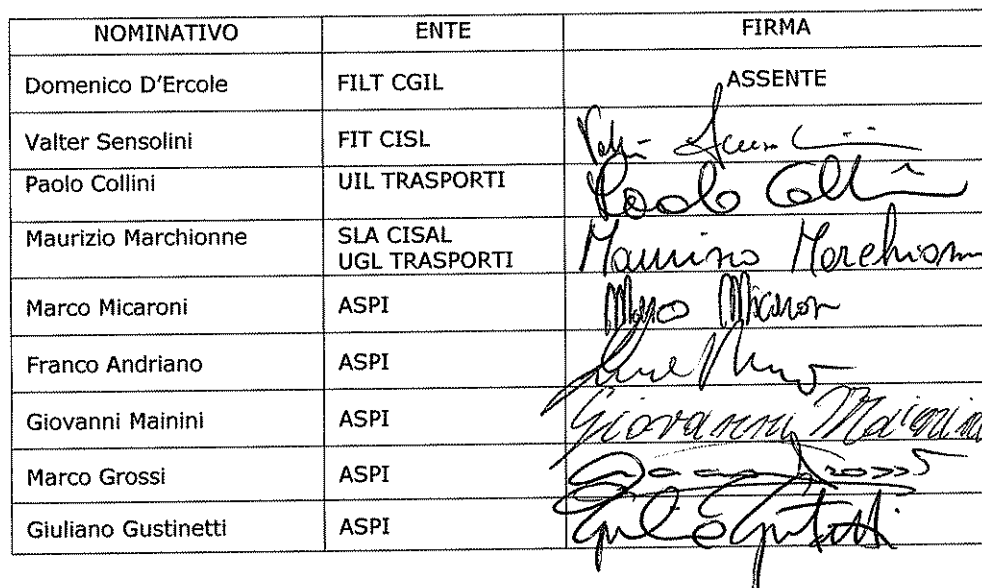 NOMINATIVO ENTE FIRMA
Domenico D'Ercole FILT CGIL ASSENTE
Valter Sensolini FIT CISL
Paolo Collini UIL TRASPORTI Paolo Collini
Maurizio Marchionne SLA CISAL Maurizio Marchionn
UGL TRASPORTI
Marco Micaroni ASPI Marco Micaron
Franco Andriano ASPI
Giovanni Mainini ASPI Giovanni Mainini
Marco Grossi ASPI
Giuliano Gustinetti ASPI